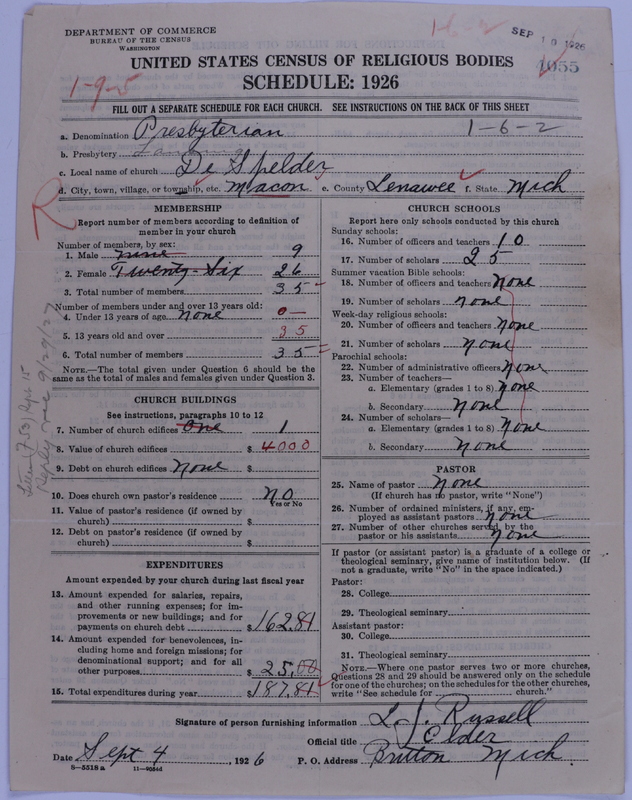 DEPARTMENT OF COMMERCE
BUREAU OF THE CENSUS
WASHINGTON
1-6-2
SEP 10 1926
1055
UNITED STATES CENSUS OF RELIGIOUS BODIES
SCHEDULE: 1926
1-9-5
FILL OUT A SEPARATE SCHEDULE FOR EACH CHURCH. SEE INSTRUCTIONS ON THE BACK OF THIS SHEET
a. Denomination Presbyterian 1-6-2
b. Presbytery Lansing
c. Local name of church De Spelder
d. City, town, village, or township, etc. Macon e. County Lenawee f. State Mich
R
MEMBERSHIP
Report number of members according to definition of
member in your church
Number of members, by sex:
1. Male nine 9
2. Female Twenty-Six 26
3. Total number of members 35
Number of members under and over 13 years old:
4. Under 13 years of age none 0
5. 13 years old and over 35
6. Total number of members 35
NOTE.—The total given under Question 6 should be
same as the total of males and females given under Question 3.
CHURCH BUILDINGS
See instructions, paragraphs 10 to 12
7. Number of church edifices One 1
8. Value of church edifices $ 4000
9. Debt on church edifices None $
10. Does church own pastor's residence NO
Yes or No
11. Value of pastor's residence (if owned by
church) $
12. Debt on pastor's residence (if owned by
church) $
EXPENDITURES
Amount expended by your church during last fiscal year
13. Amount expended for salaries, repairs,
and other running expenses; for im-
provements or new buildings; and for
payments on church debt $ 162.81
14. Amount expended for benevolences, in-
cluding home and foreign missions; for
denominational support; and for all
other purposes $ 25.00
15. Total expenditures during year $ 187.81
CHURCH SCHOOLS
Report here only schools conducted by this church
Sunday schools:
16. Number of officers and teachers 10
17. Number of scholars 25
Summer vacation Bible schools:
18. Number of officers and teachers None
19. Number of scholars none
Week-day religious schools:
20. Number of officers and teachers None
21. Number of scholars None
Parochial schools:
22. Number of administrative officers None
23. Number of teachers—
a. Elementary (grades 1 to 8) None
b. Secondary None
24. Number of scholars—
a. Elementary (grades 1 to 8) None
b. Secondary None
PASTOR
25. Name of pastor None
(If church has no pastor, write "None")
26. Number of ordained ministers, if any, em-
ployed as assistant pastors None
27. Number of other churches served by the
pastor or his assistants None
If pastor (or assistant pastor) is a graduate of a college or
theological seminary, give name of institution below. (If
not a graduate, write "No" in the space indicated.)
Pastor:
28. College
29. Theological seminary
Assistant pastor:
30. College
31. Theological seminary
NOTE.—Where one pastor serves two or more churches,
Questions 28 and 29 should be answered only on the schedule
for one of the churches; on the schedules for the other churches,
write "See schedule for church."
Signature of person furnishing information L. J. Russell
Official title Elder
Date Sept 4, 1926 P. O. Address Britton Mich
8—5518 a 11—9054d